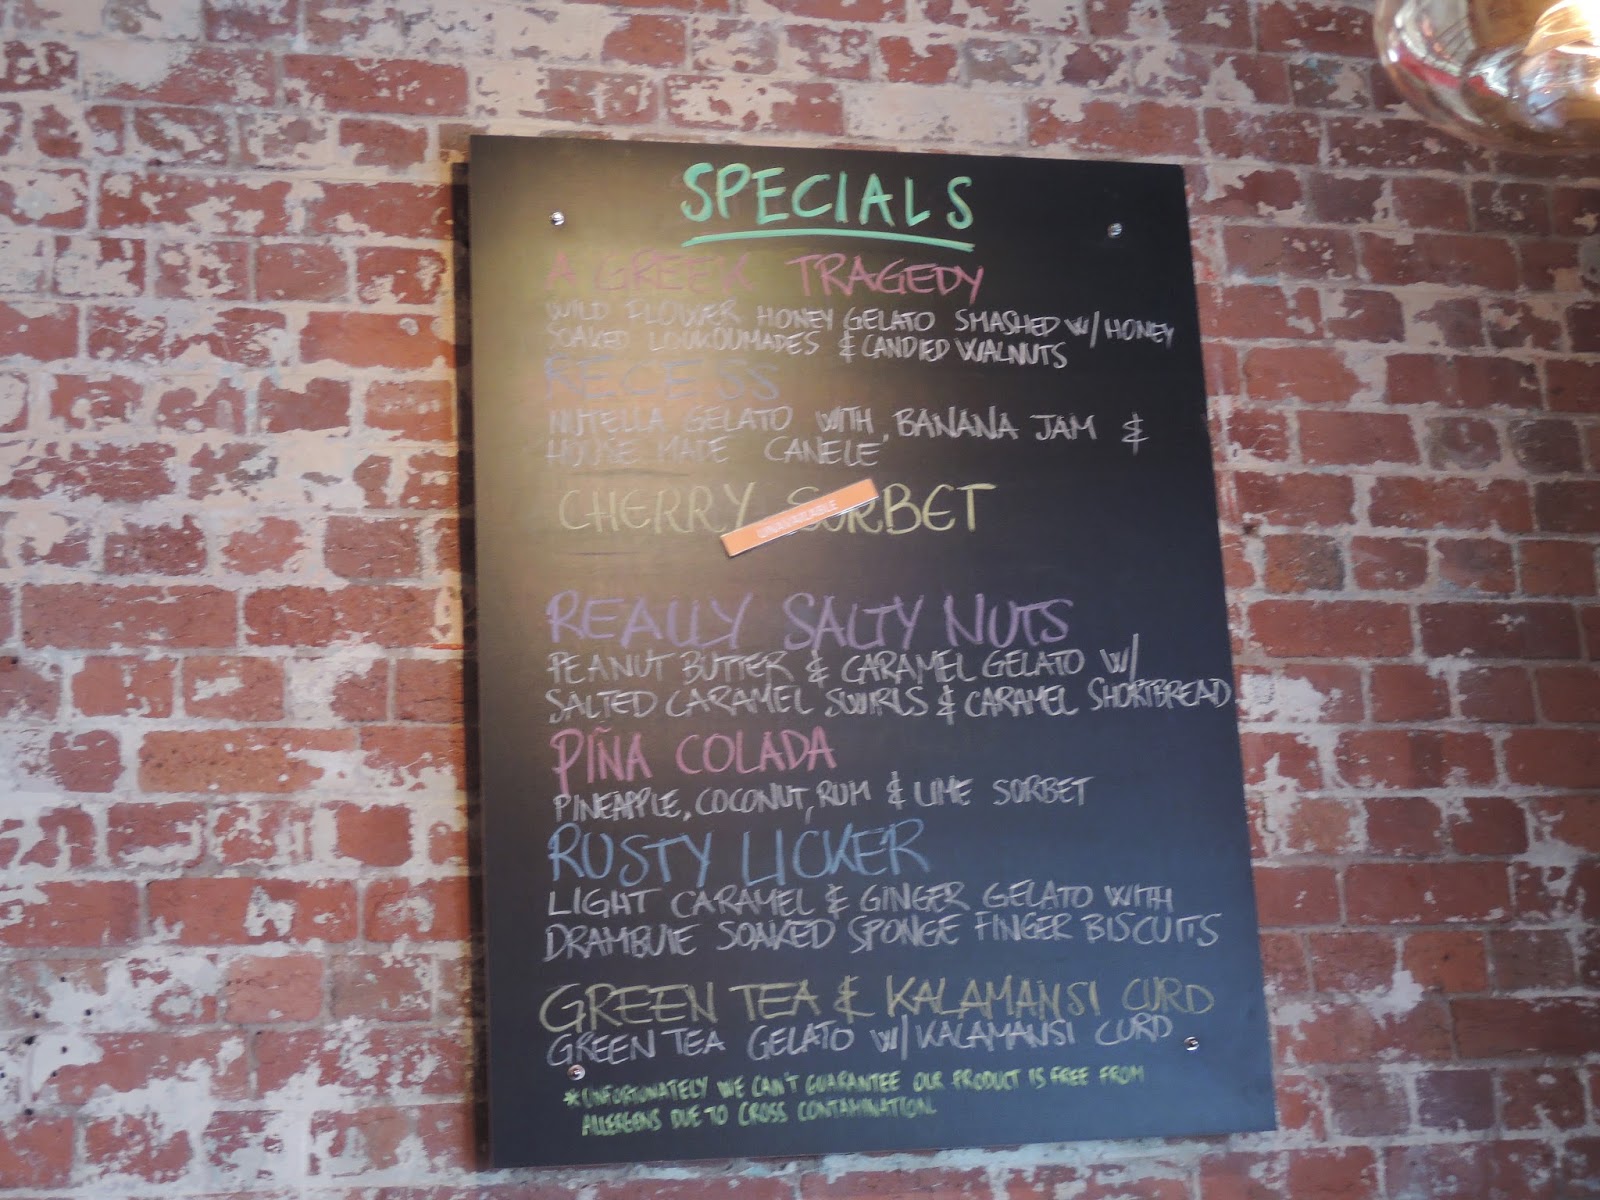 SPECIALS
A GREEK TRAGEDY
WILD FLOWER HONEY GELATO SMASHED W/ HONEY
SOAKED LOUKOUMADES & CANDIED WALNUTS
RECESS
NUTELLA GELATO WITH BANANA JAM &
HOUSE MADE CANELE
CHERRY SORBET
UNAVAILABLE
REALLY SALTY NUTS
PEANUT BUTTER & CARAMEL GELATO W/
SALTED CARAMEL SWIRLS & CARAMEL SHORTBREAD
PIÑA COLADA
PINEAPPLE, COCONUT, RUM & LIME SORBET
RUSTY LICKER
LIGHT CARAMEL & GINGER GELATO WITH
DRAMBUIE SOAKED SPONGE FINGER BISCUITS
GREEN TEA & KALAMANSI CURD
GREEN TEA GELATO W/ KALAMANSI CURD
*UNFORTUNATELY WE CAN'T GUARANTEE OUR PRODUCT IS FREE FROM
ALLERGENS DUE TO CROSS CONTAMINATION.